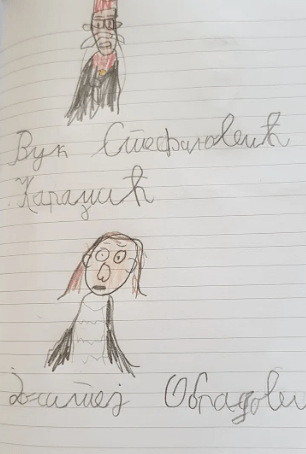 Вук Стефановић
Караџић
Доситеј Обрадови